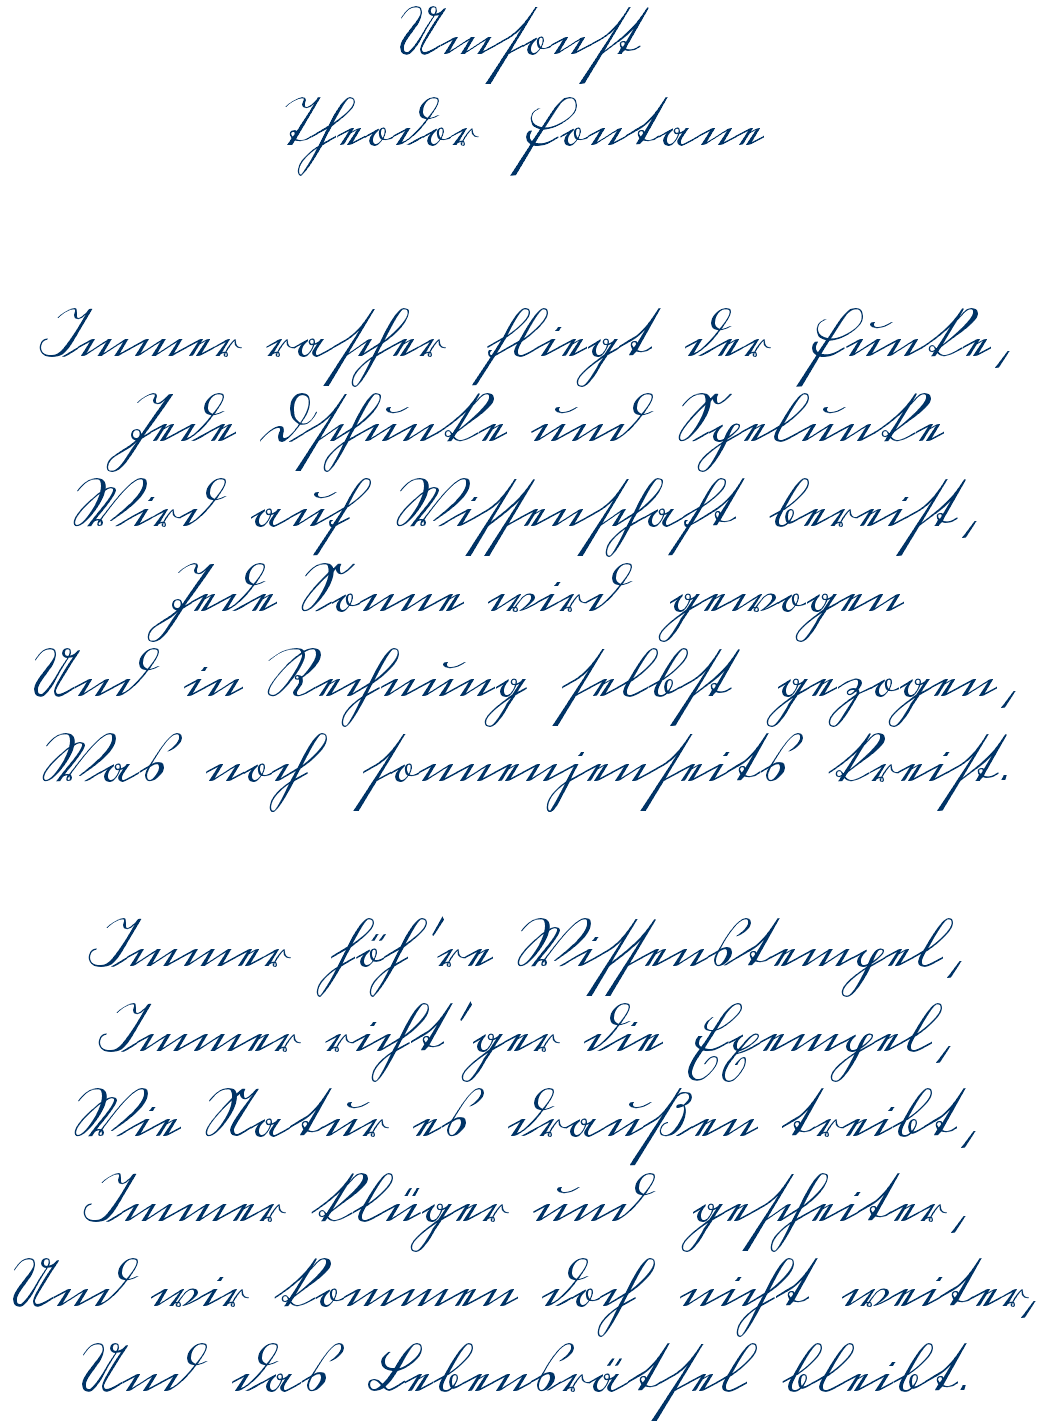 Umsonst
Theodor Fontane
Immer rascher fliegt der Funke,
Jede Dschunke und Spelunke
Wird auf Wissenschaft bereist,
Jede Sonne wird gewogen
Und in Rechnung selbst gezogen,
Was noch sonnenjenseits kreist.
Immer höh're Wissenstempel,
Immer richt'ger die Exempel,
Wie Natur es draußen treibt,
Immer klüger und gescheiter,
Und wir kommen doch nicht weiter,
Und das Lebensrätsel bleibt.